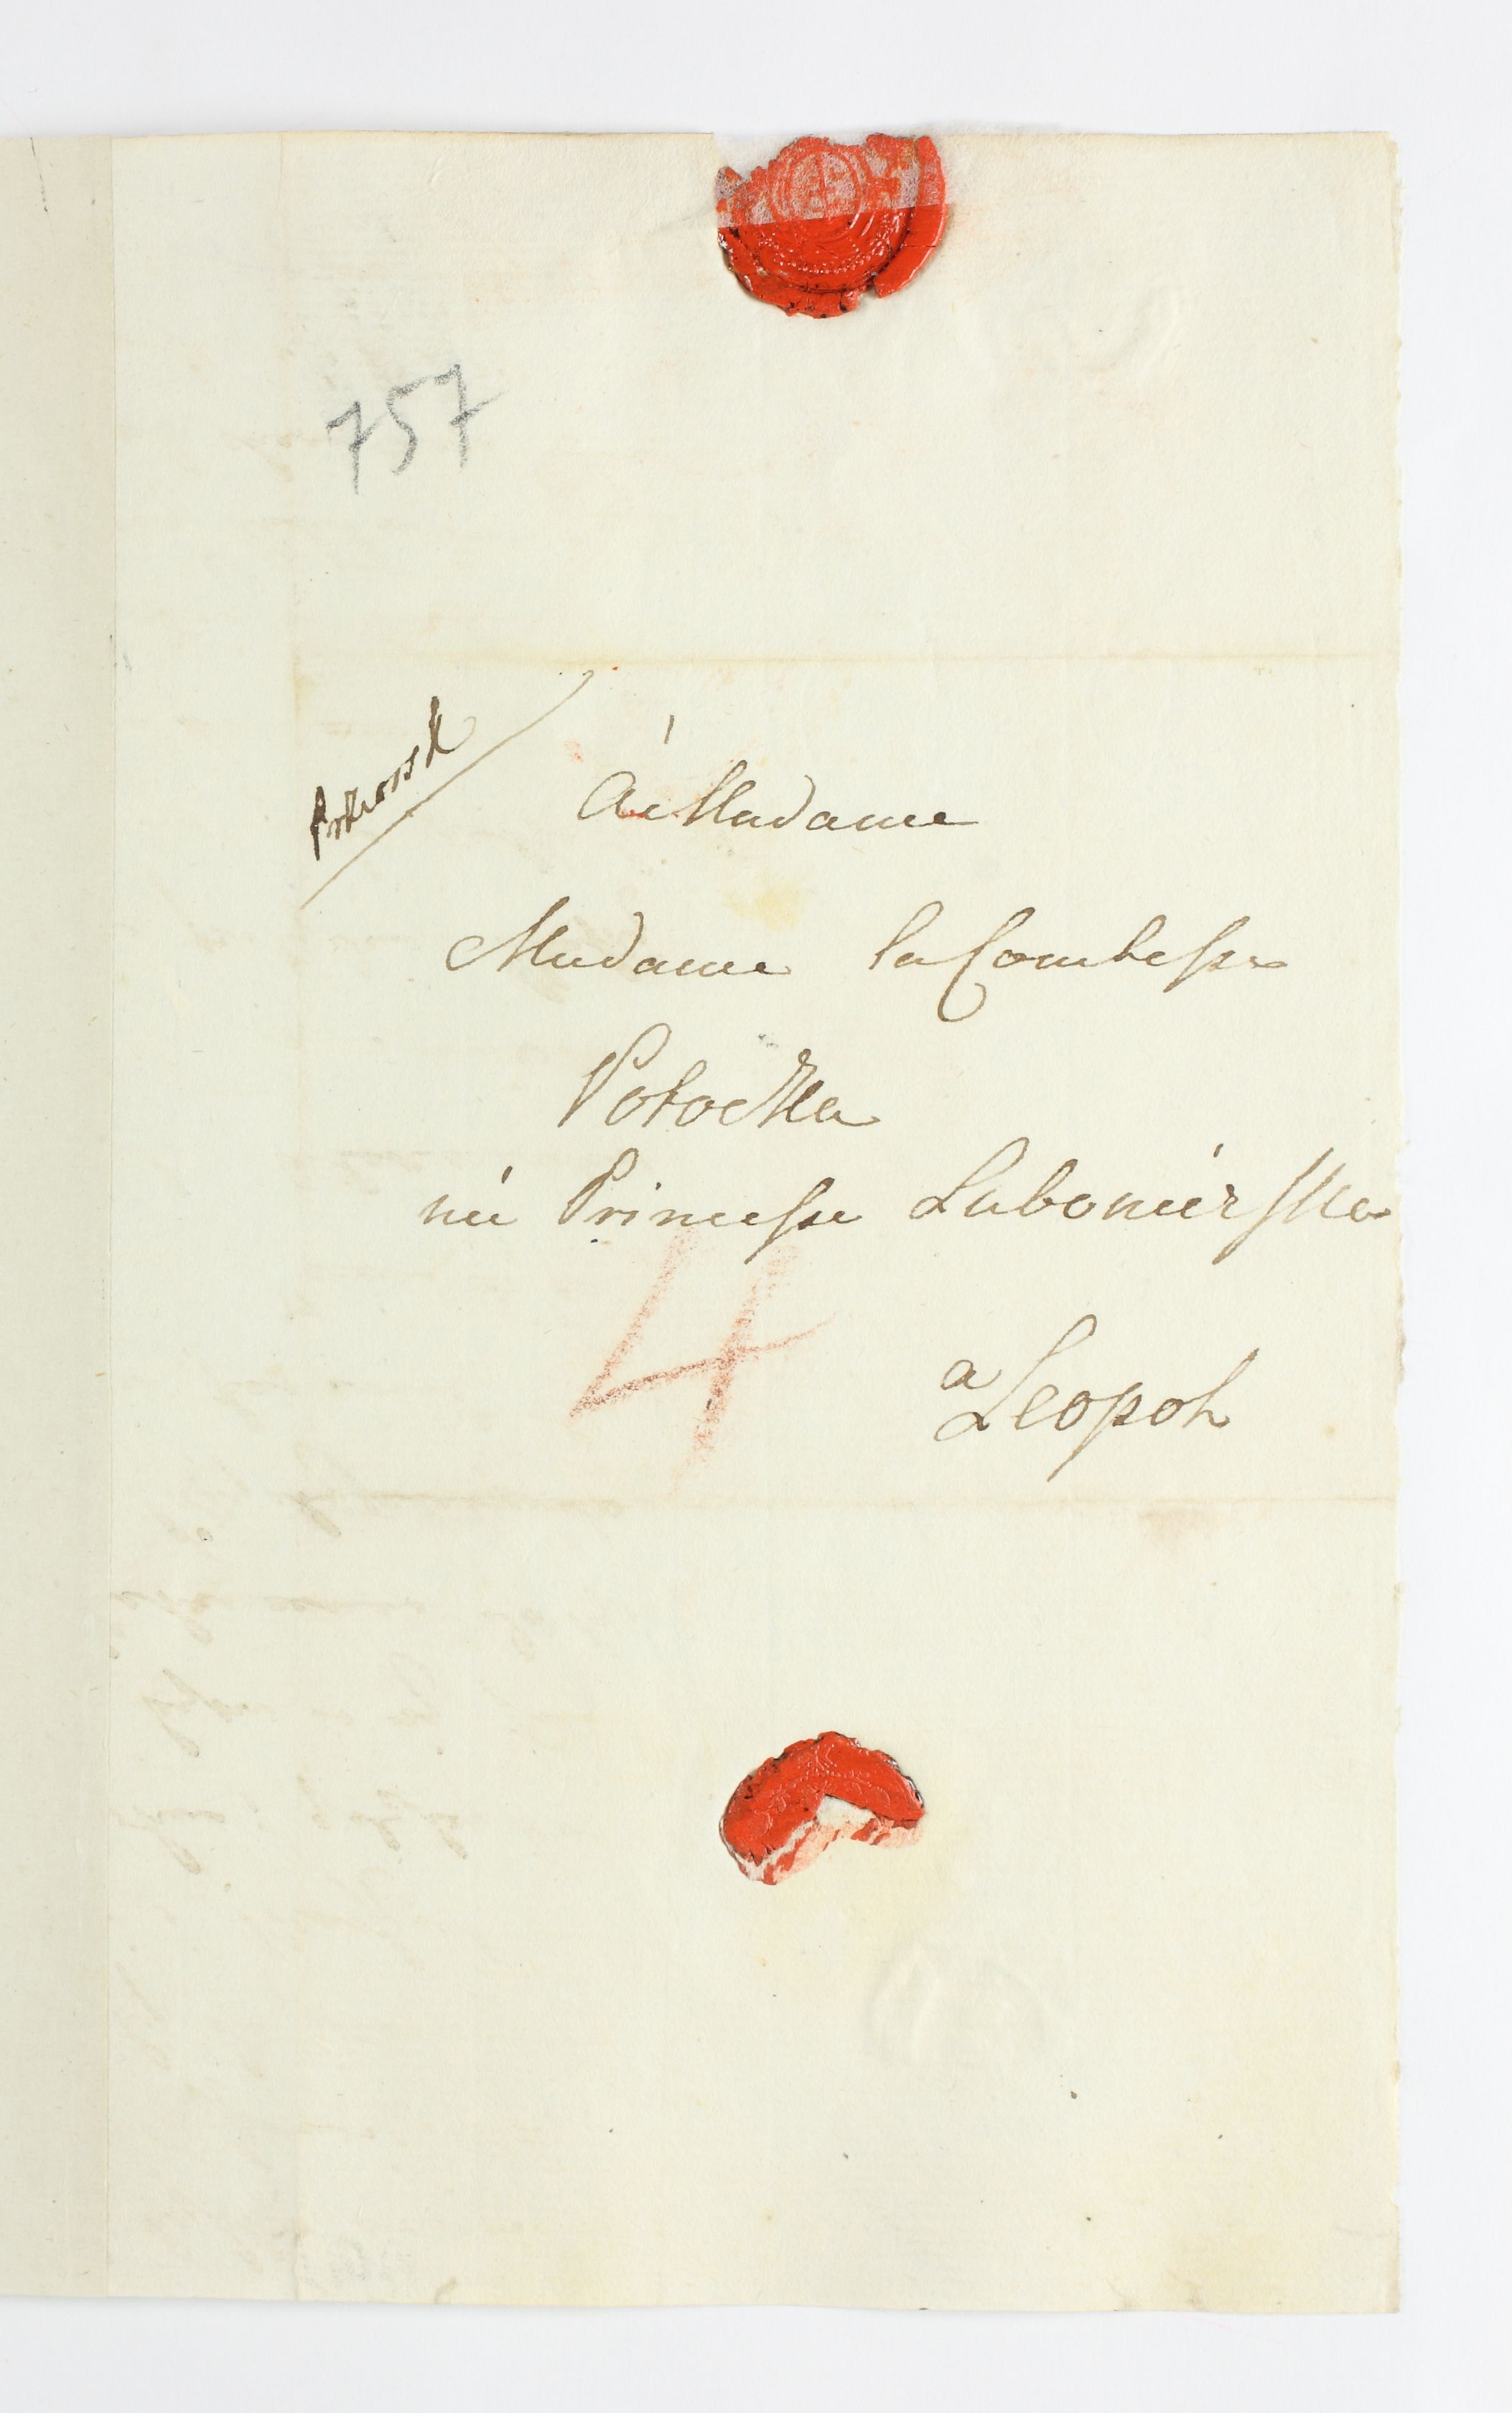 757
à Madame
Madame la Comtesse
Potocka
née Princesse Lubomirska
4
a Leopol